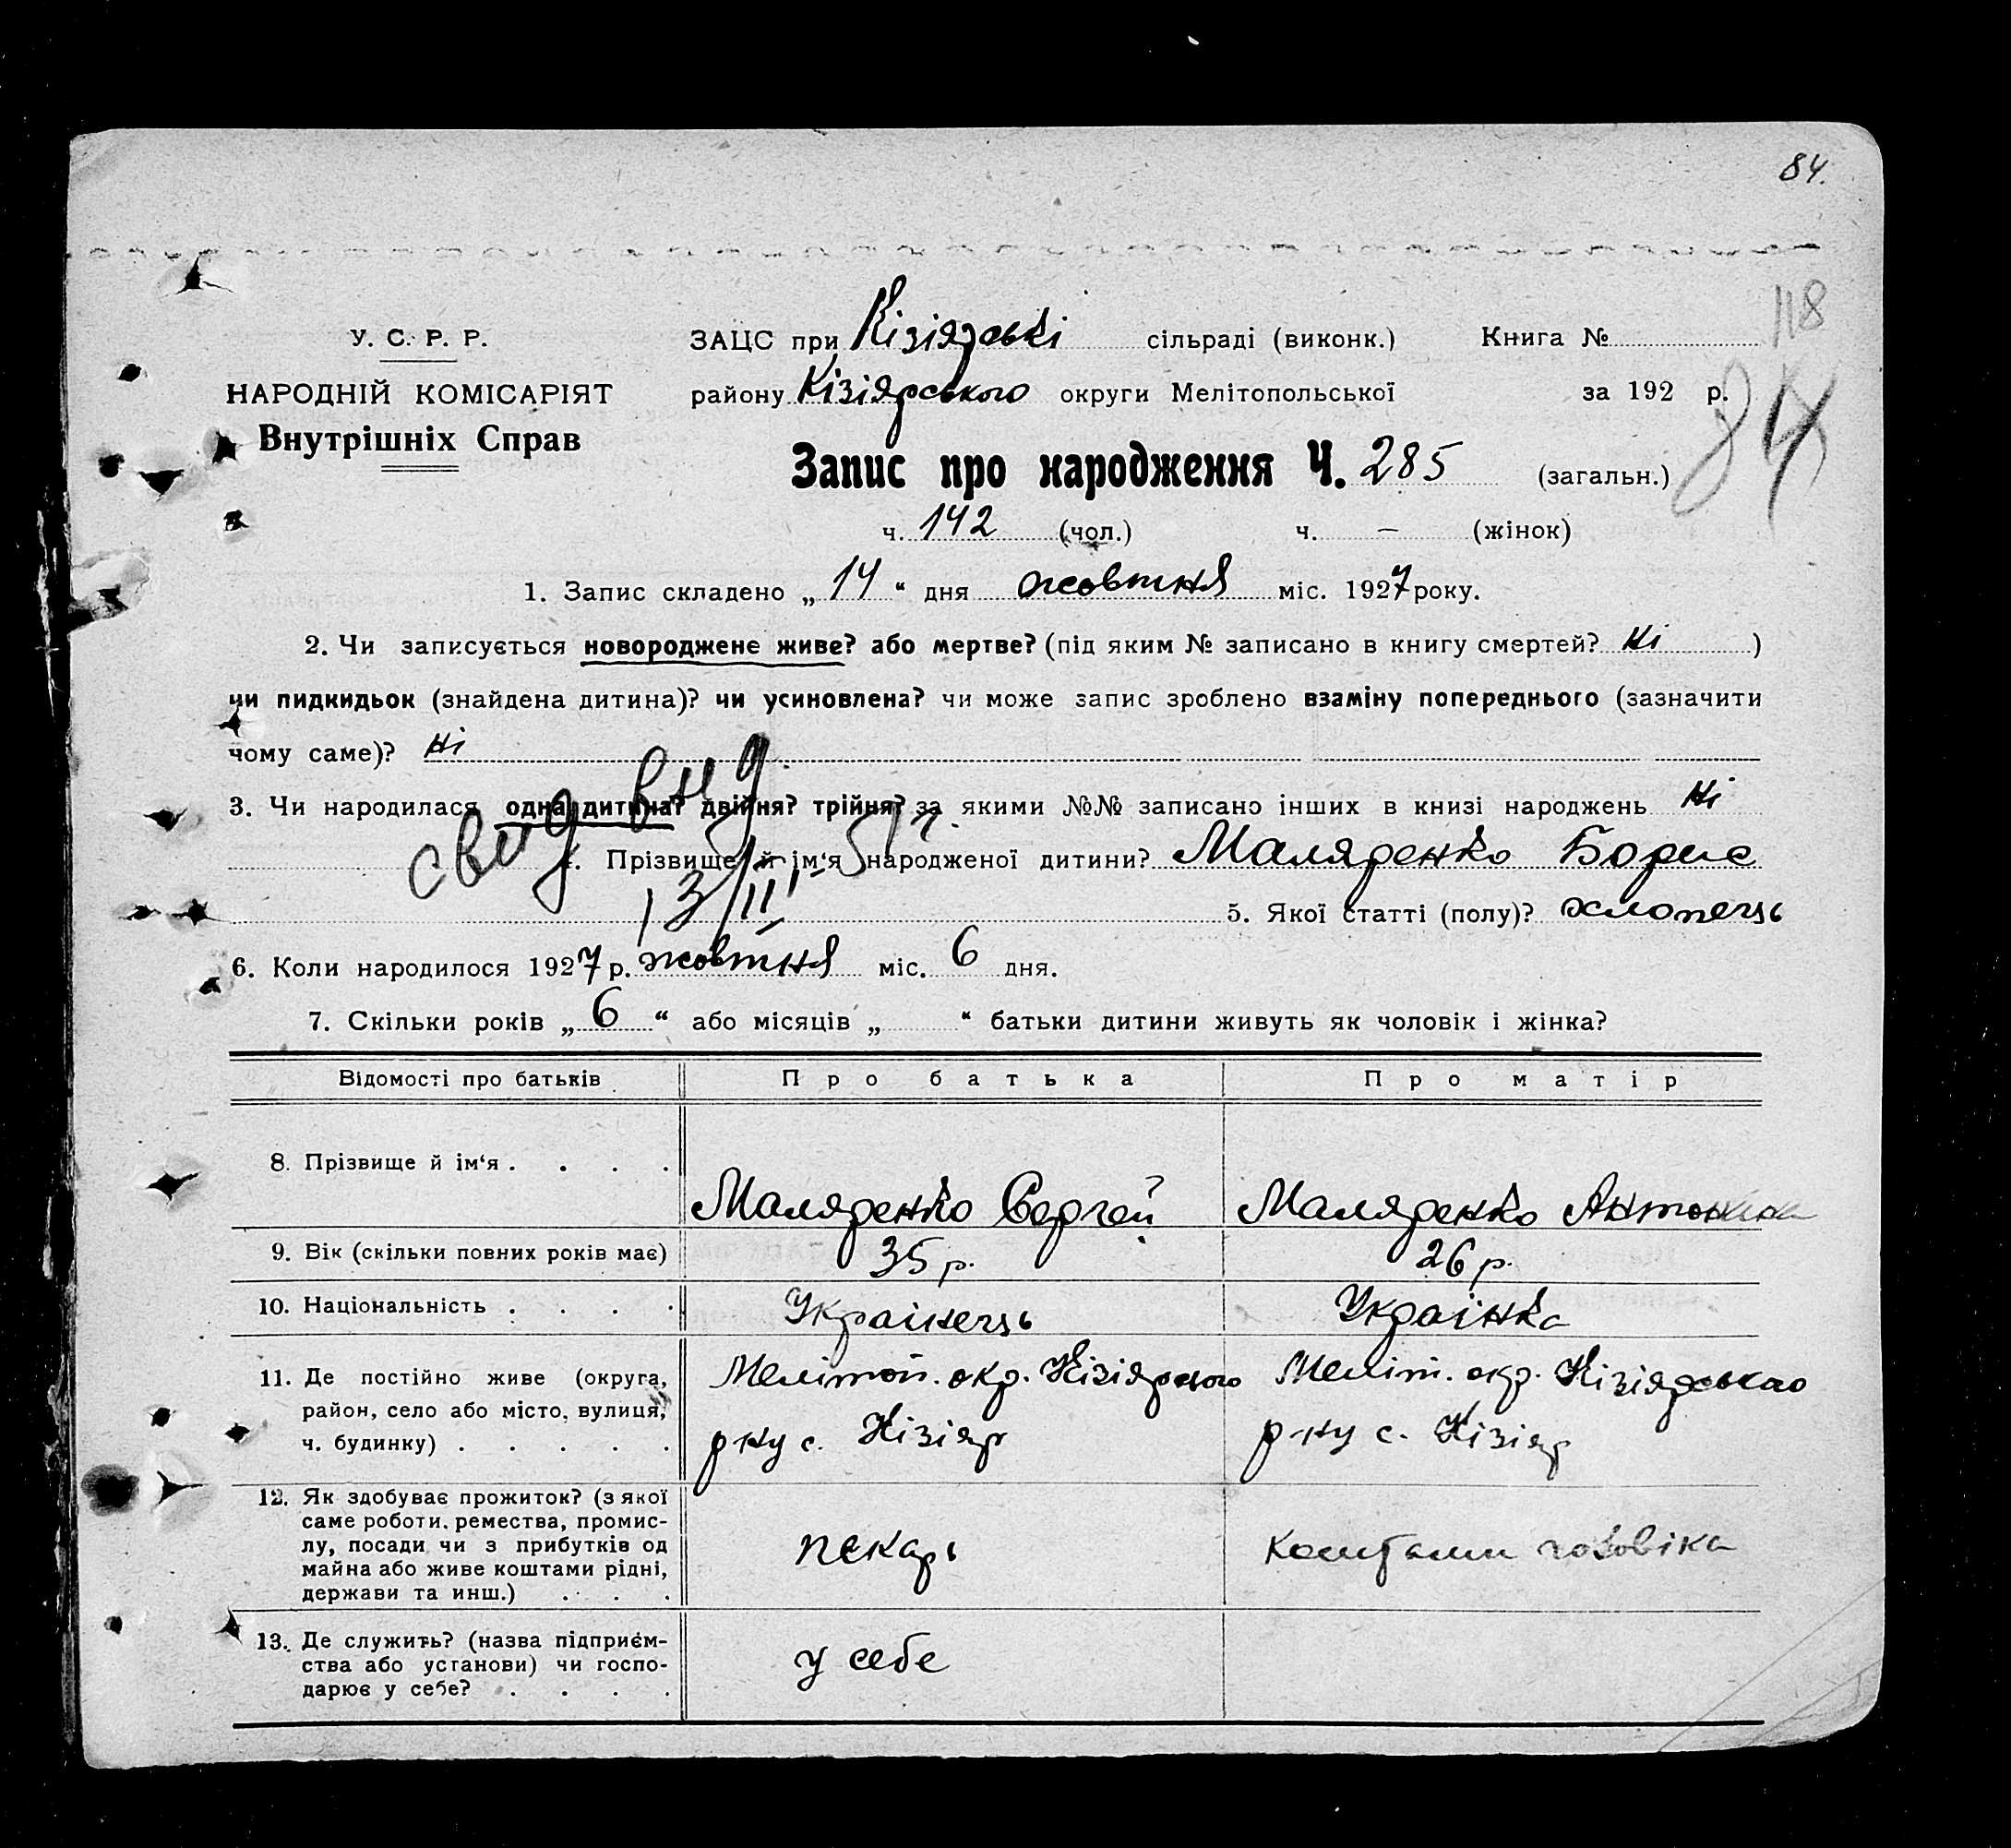 84.
118
84
У. С. Р. Р.
НАРОДНІЙ КОМІСАРІЯТ
Внутрішніх Справ
ЗАЦС при Кізіярські сільраді (виконк.) Книга №
району Кізіярського округи Мелітопольської за 192 р.
Запис про народження Ч. 285 (загальн.)
ч. 142 (чол.) ч. – (жінок)
1. Запис складено „ 14 “ дня жовтня міс. 1927 року.
2. Чи записується новороджене живе? або мертве? (під яким № записано в книгу смертей? Ні )
чи пидкидьок (знайдена дитина)? чи усиновлена? чи може запис зроблено взаміну попереднього (зазначити
чому саме)? Ні
3. Чи народилася одна дитина? двійня? трійня? за якими №№ записано інших в книзі народжень Ні
свид
13/II
4. Прізвище й ім‘я народженої дитини? Маляренко Борис
5. Якої статті (полу)? хлопець
6. Коли народилося 1927 р. жовтня міс. 6 дня.
7. Скільки років „ 6 “ або місяців „ “ батьки дитини живуть як чоловік і жінка?
Відомості про батьків Про батька Про матір
8. Прізвище й ім‘я . . . . Маляренко Сергей Маляренко Антонина
9. Вік (скільки повних років має) 35 р. 26 р.
10. Національність . . . . Українець Українка
11. Де постійно живе (округа, Мелітоп. окр. Кізіярського Меліт. окр. Кізіярського
район, село або місто, вулиця,
ч. будинку) . . . . . р-ну с. Кізіяр р-ну с. Кізіяр
12. Як здобуває прожиток? (з якої
саме роботи, ремества, промис-
лу, посади чи з прибутків од пекарь коштами чоловіка
майна або живе коштами рідні,
держави та инш.) . . .
13. Де служить? (назва підприєм-
ства або установи) чи госпо- у себе
дарює у себе? . . . .